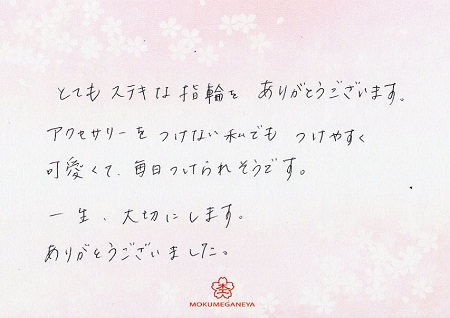 とてもステキな指輪を ありがとうございます。
アクセサリーをつけない私でも つけやすく
可愛くて、毎日つけられそうです。
一生、大切にします。
ありがとうございました。
MOKUMEGANEYA